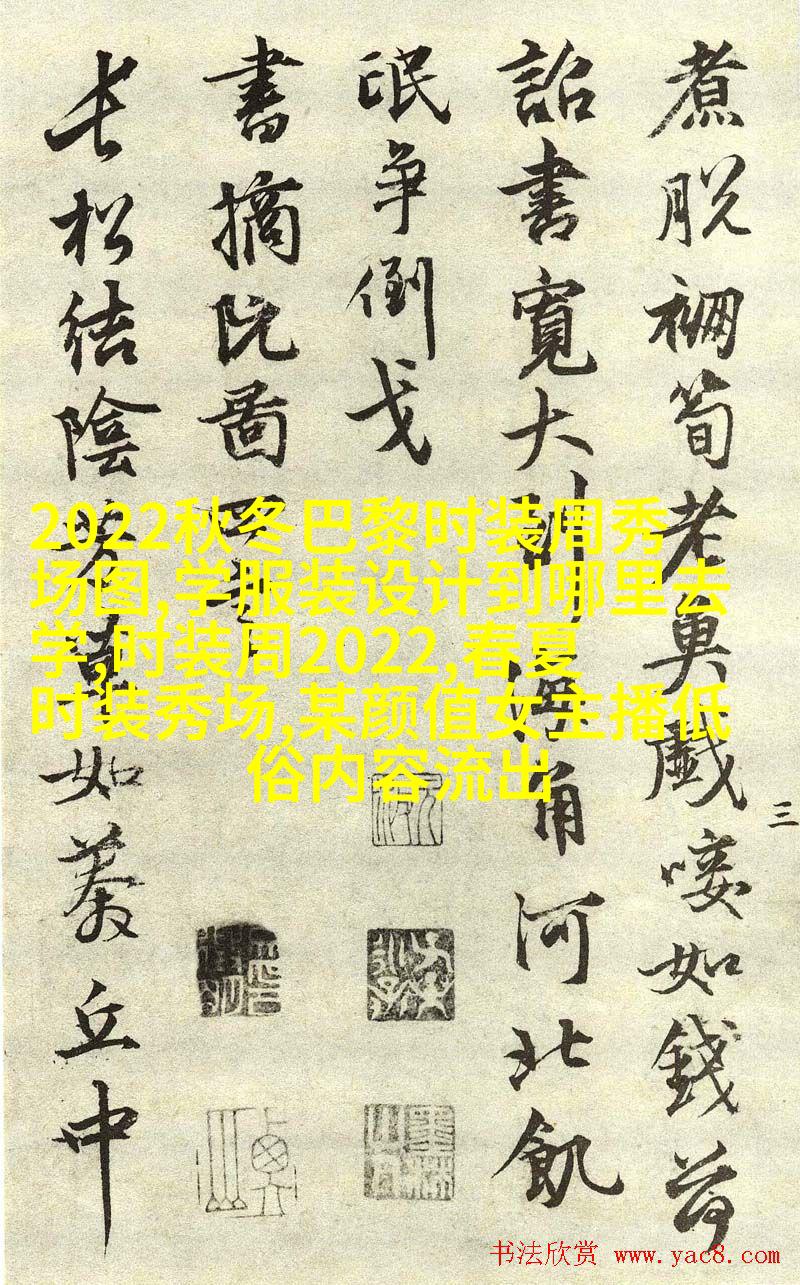 煮脱襕筍老魚戲唼如錢荷
詔書寬大到海角河北飢
氓爭倒戈
書摘阮圖四
長松結陰芳草如綦丘中
三
2022秋冬巴黎时装周秀
场图,学服装设计到哪里去
学,时装周2022,春夏
时装秀场,某颜值女主播低
俗内容流出
书法欣赏 www.yac8.com